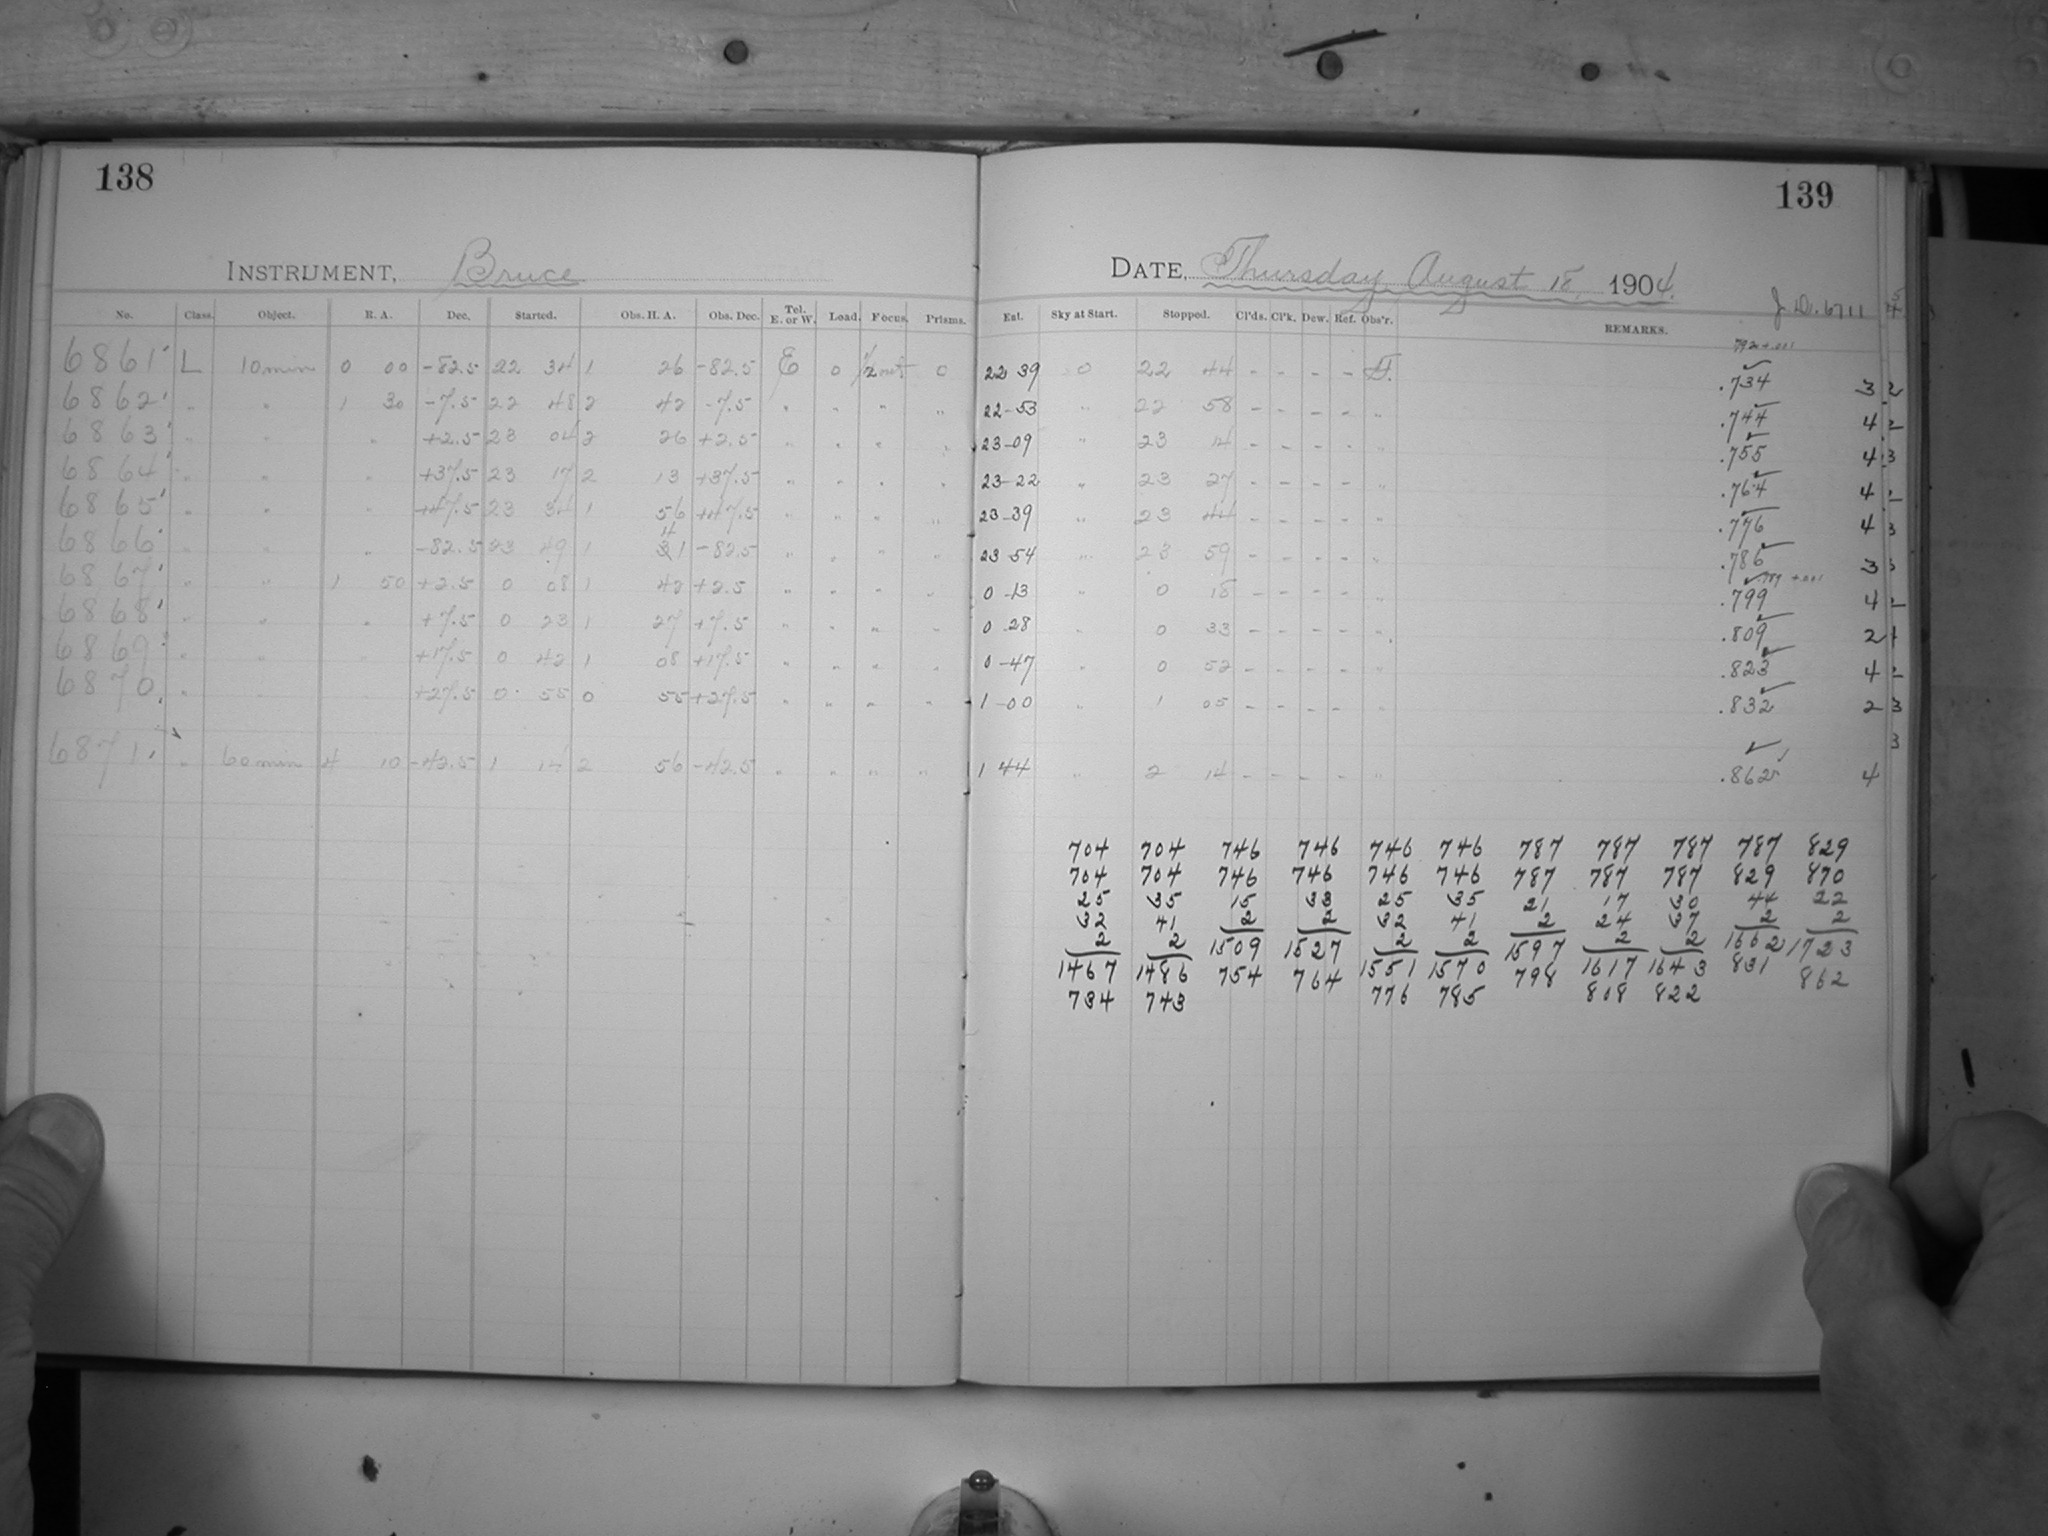 138
INSTRUMENT, Bruce
No. Class. Object. R. A. Dec. Started. Obs. H. A. Obs. Dec. Tel. E. or W. Load. Focus. Prisms.
6861 L 10 min 0 00 -82.5 22 34 1 26 -82.5 E 0 0
6862 " " 1 30 -7.5 22 48 2 42 -7.5 " " " "
6863 " " " +2.5 23 04 2 26 +2.5 " " " "
6864 " " " +37.5 23 17 2 13 +37.5 " " " "
6865 " " " +47.5 23 34 1 56 +47.5 " " " "
6866 " " " -82.5 23 49 1 41 -82.5 " " " "
6867 " " 1 50 +2.5 0 08 1 42 +2.5 " " " "
6868 " " " +7.5 0 23 1 27 +7.5 " " " "
6869 " " " +17.5 0 42 1 08 +17.5 " " " "
6870 " " " +27.5 0 55 0 55 +27.5 " " " "
6871 " 60 min 4 10 -42.5 1 14 2 56 -42.5 " " " "
139
DATE, Thursday August 18, 1904.
J. D. 6711
Ent. Sky at Start. Stopped. Cl'ds. Cl'k. Dew. Ref. Obs'r. REMARKS.
22 39 0 22 44 - - - - .734 3
22-53 " 22 58 - - - - " .744 4
23-09 " 23 14 - - - - " .755 4
23-22 " 23 27 - - - - " .764 4
23-39 " 23 44 - - - - " .776 4
23 54 " 23 59 - - - - " .786 3
0-13 " 0 18 - - - - " .799 4
0 28 " 0 33 - - - - " .809 2
0-47 " 0 52 - - - - " .823 4
1-00 " 1 05 - - - - " .832 2
1 44 " 2 14 - - - - " .862 4
704 704 746 746 746 746 787 787 787 787 829
704 704 746 746 746 746 787 787 787 829 870
25 35 15 33 25 35 21 17 30 44 22
32 41 2 2 32 41 2 24 37 2 2
2 2 1509 1527 2 2 1597 2 2 1662 1723
1467 1486 754 764 1551 1570 798 1617 1643 831 862
734 743 776 785 808 822